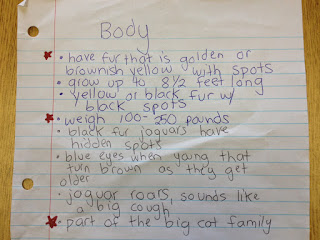 Body
• have fur that is golden or
brownish yellow with spots
• grow up to 8 1/2 feet long
• yellow or black fur w/
black spots
• weigh 100-250 pounds
• black fur jaguars have
hidden spots
• blue eyes when young that
turn brown as they get
older
• jaguar roars, sounds like
a big cough
• part of the big cat family